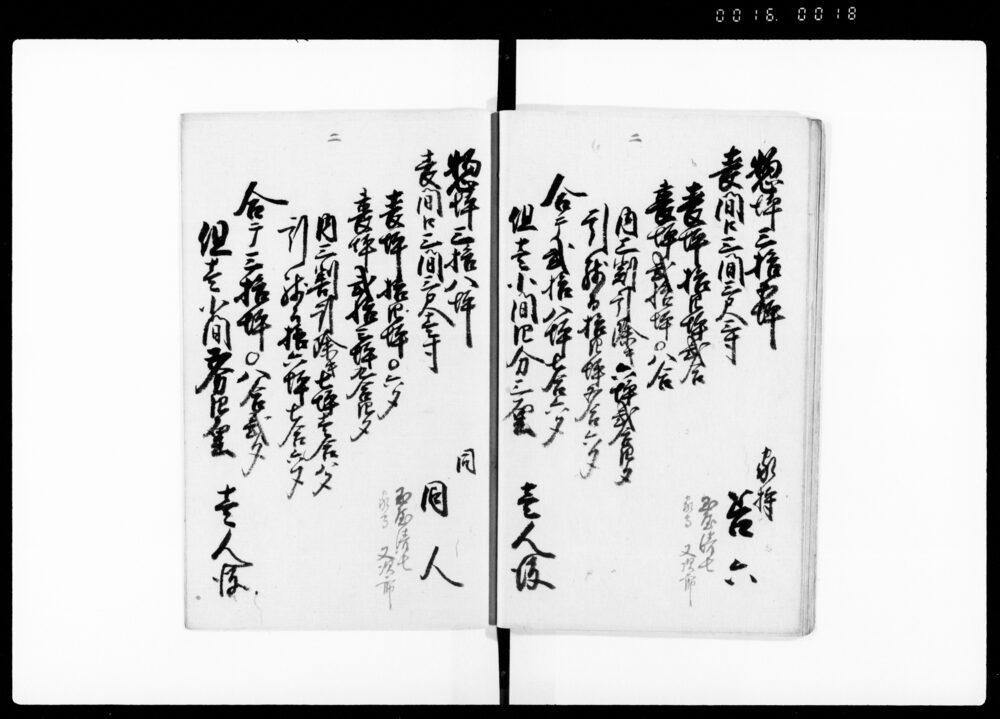 0016. 0018
二
惣坪三拾四坪
表間口三間三尺三寸
表坪拾四坪弐合
裏坪弐拾坪〇八合
内三割引除キ六坪弐合四夕
引残る拾四坪五合六夕
合テ弐拾八坪七合六夕
但壱小間四分三厘
家持
六
清七
家守 又次郎
壱人役
二
惣坪三拾八坪
表間口三間三尺壱寸
表坪拾四坪〇六夕
裏坪弐拾三坪九合四夕
内三割引除キ七坪壱合八夕
引残る拾六坪七合六夕
合テ三拾坪〇八合弐夕
但壱小間
同
同人
清七
家守 又次郎
壱人役